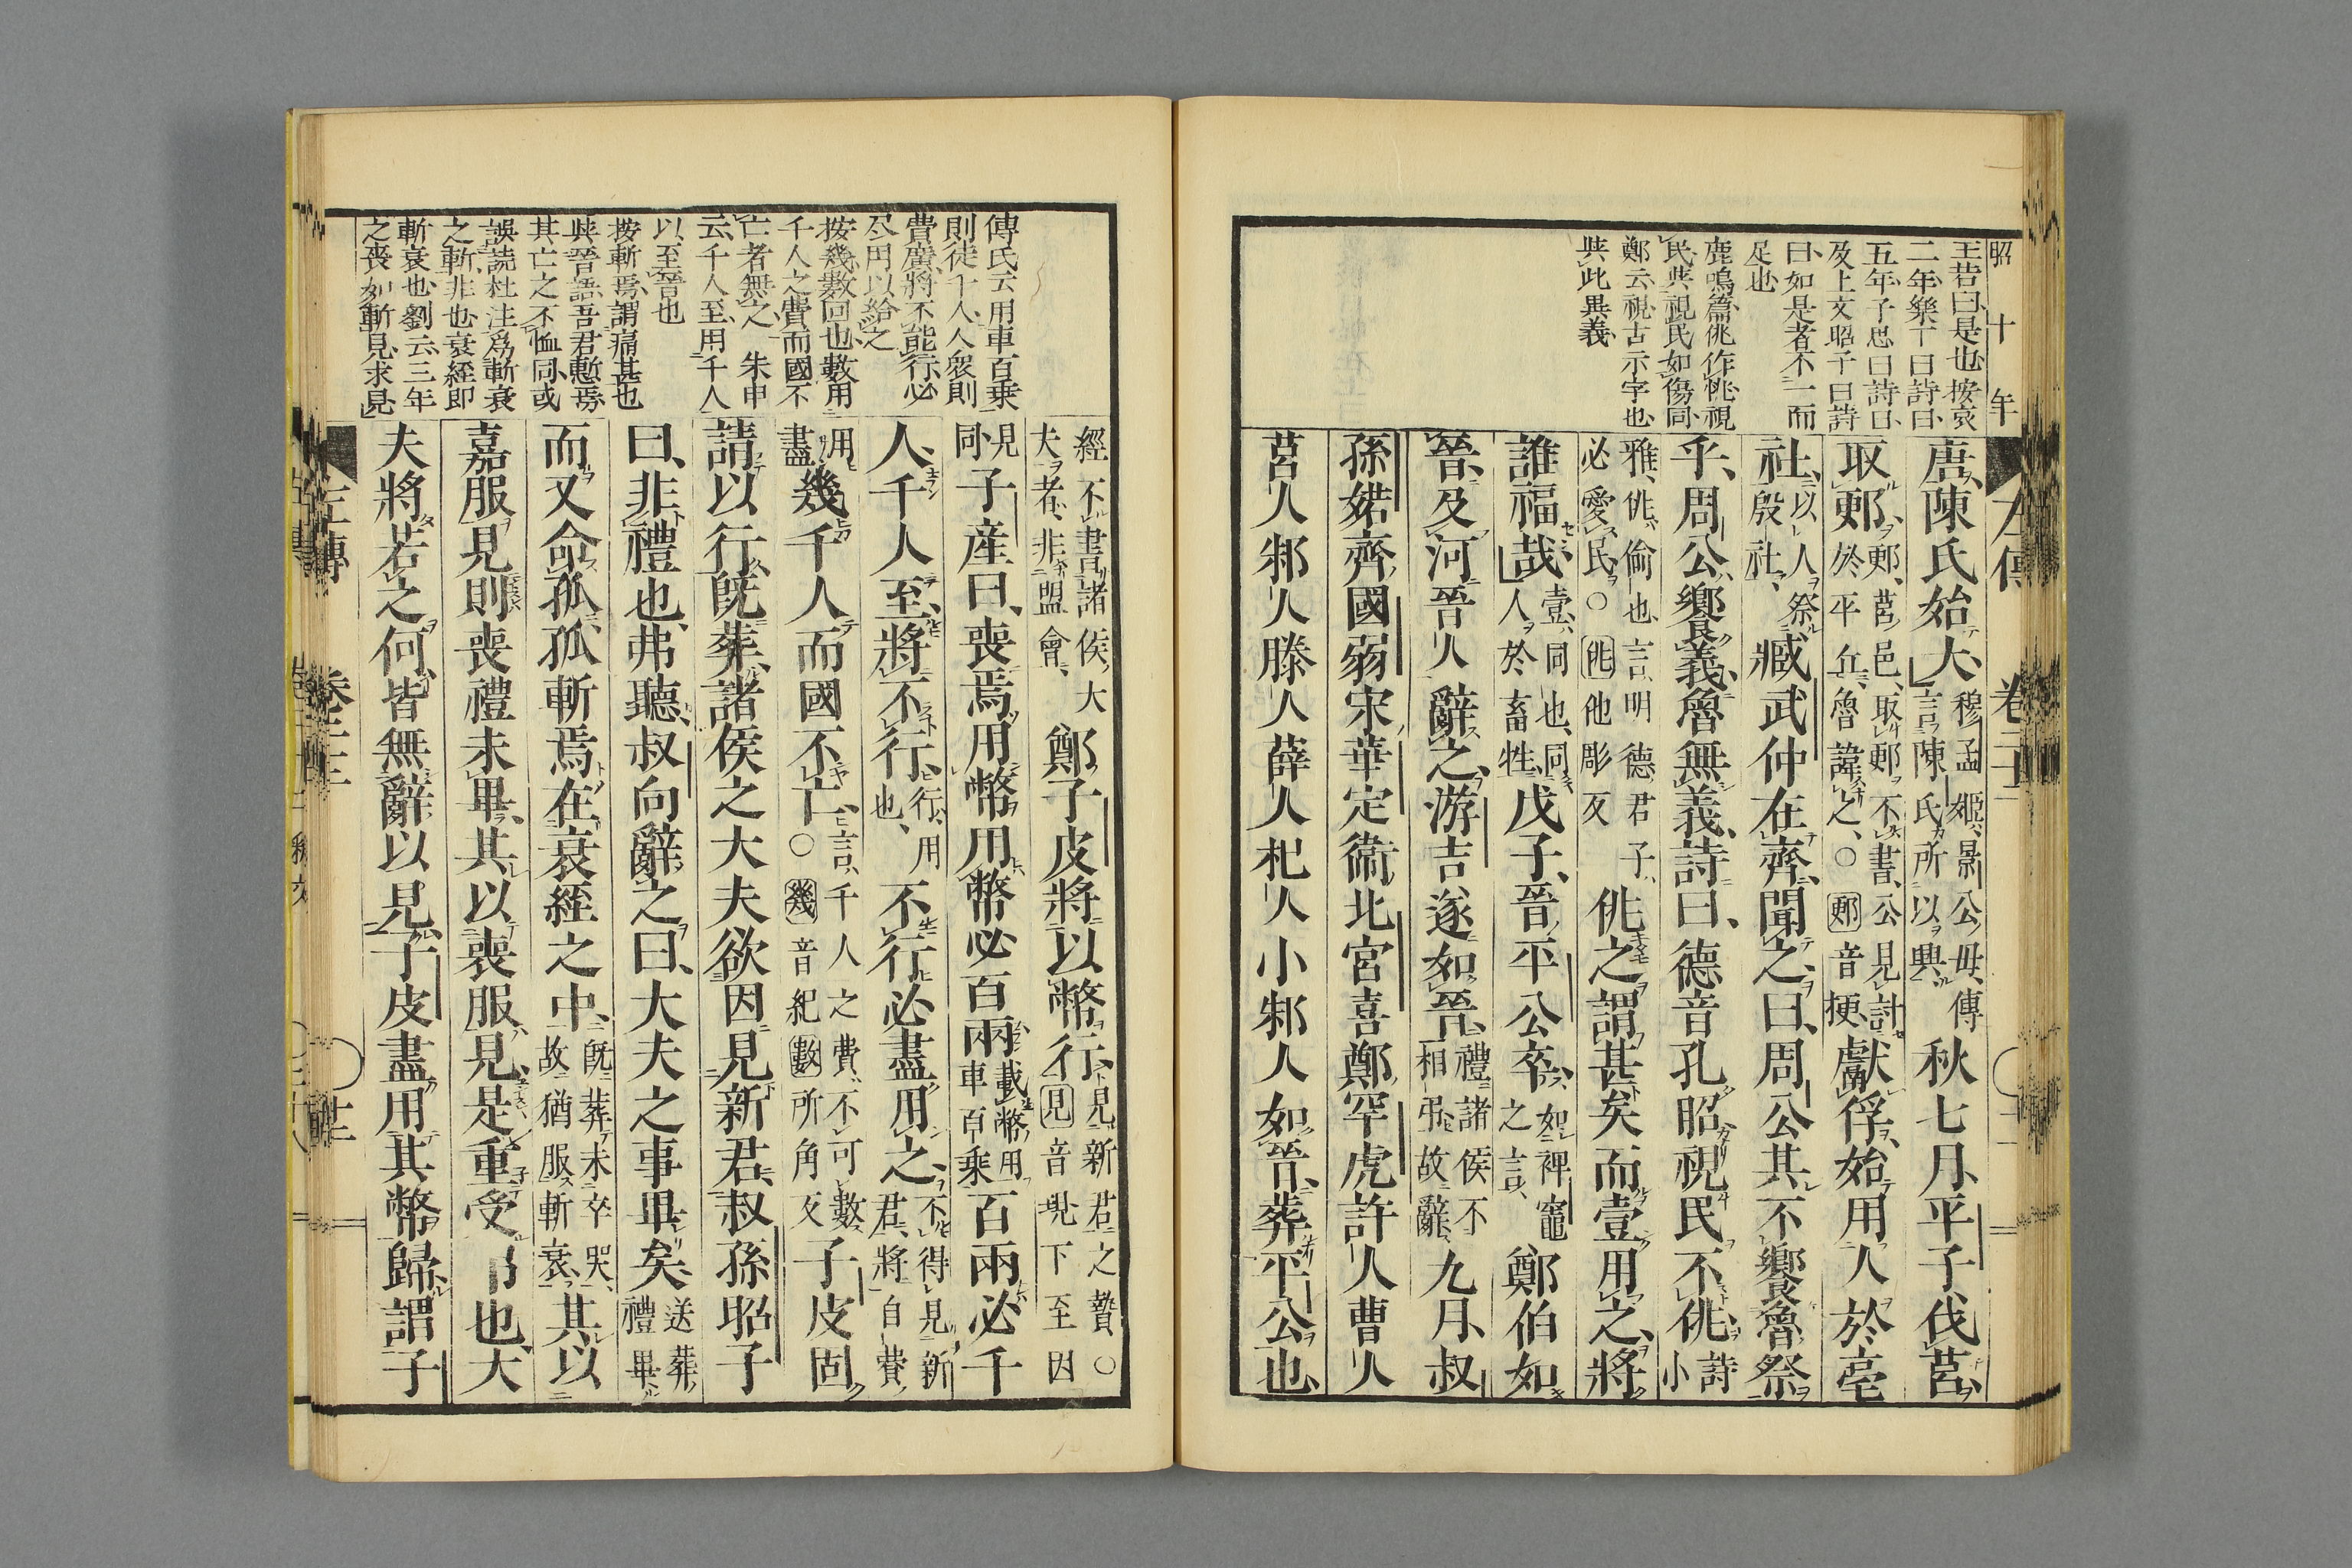 昭十年
王若曰是也 按哀
二年樂丁曰詩曰
五年子思曰詩曰
及上文昭子曰詩
曰如是者不一而
足也
鹿鳴篇佻作恌視
民與視民如傷同
鄭云視古示字也
與此異義
左傳 卷二十二
唐陳氏始大穆孟姬景公母傳言陳氏所以興秋七月平子伐莒
取郠郠莒邑取郠不書公見討於平丘魯諱之○郠音梗獻俘始用人於亳
社以人祭殷社臧武仲在齊聞之曰周公其不饗魯祭
乎周公饗義魯無義詩曰德音孔昭視民不佻詩小
雅佻偷也言明德君子必愛民○佻他彫反佻之謂甚矣而壹用之將
誰福哉壹同也同人於畜牲戊子晉平公卒如裨竈之言鄭伯如
晉及河晉人辭之游吉遂如晉禮諸侯不相弔故辭九月叔
孫婼齊國弱宋華定衞北宮喜鄭罕虎許人曹人
莒人邾人滕人薛人杞人小邾人如晉葬平公也
傅氏云用車百乘
則徒千人人衆則
費廣將不能行必
尽用以給之
按幾數回也數用
千人之費而國不
亡者無之 朱申
云千人至用千人
以至晉也
按斬焉謂痛甚也
與晉語吾君慙焉
其亡之不恤同或
誤読杜注爲斬衰
之斬非也衰絰即
斬衰也劉云三年
之喪如斬見求見
經不書諸侯大夫者非盟會鄭子皮將以幣行見新君之贄○見音現下至因
見同子産曰喪焉用幣用幣必百兩載幣用車百乘百兩必千
人千人至將不行行用也不行必盡用之不得見新君將自費用
盡幾千人而國不亡言千人之費不可數○幾音紀數所角反子皮固
請以行既葬諸侯之大夫欲因見新君叔孫昭子
曰非禮也弗聽叔向辭之曰大夫之事畢矣送葬禮畢
而又命孤孤斬焉在衰絰之中既葬未卒哭故猶服斬衰其以
嘉服見則喪禮未畢其以喪服見是重受弔也大
夫將若之何皆無辭以見子皮盡用其幣歸謂子
左傳 卷二十二